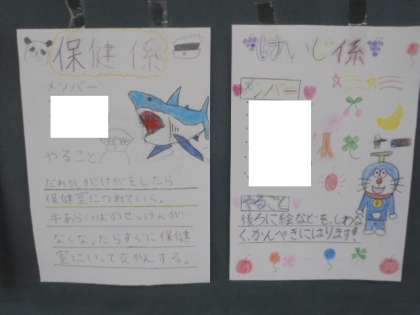 保健係
メンバー
やること
だれかがけがをしたら
保健室につれていく。
手あらいばのせっけんが
なくなったらすぐに保健
室にいって交かんする。
けいじ係
メンバー
やること
後ろに絵などを、しわな
く、かんぺきにはります！